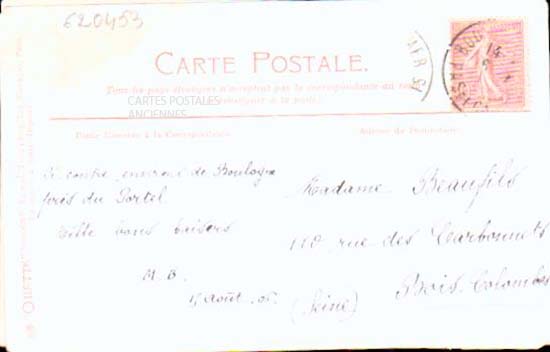 620453
CARTE POSTALE.
Tous les pays étrangers n'acceptent pas la correspondance au recto
CARTES POSTALES
ANCIENNES
Partie Réservée à la Correspondance
Adresse du Destinataire
Ci contre environs de Boulogne
près du Portel
Mille bons baisers
M. B.
15 Août 05
Madame Beaufils
110 rue des Carbonnets
Bois-Colombes
(Seine)